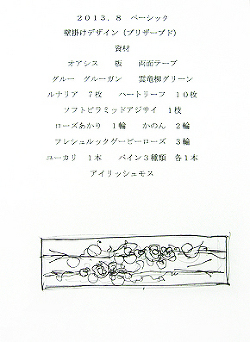 2013.8 ベーシック
壁掛けデザイン（プリザーブド）
資材
オアシス 板 両面テープ
グルー グルーガン 雲竜柳グリーン
ルナリア 7枚 ハートリーフ 10枚
ソフトピラミッドアジサイ 1枝
ローズあかり 1輪 かのん 2輪
フレシュルックデービーローズ 3輪
ユーカリ 1本 ペイン3種類 各1本
アイリッシュモス